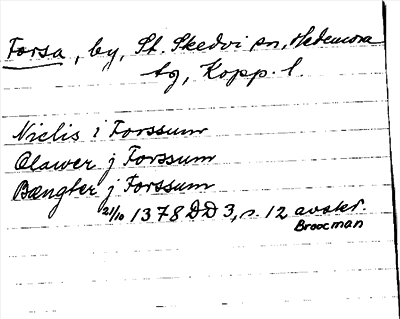 Forsa, by, St. Skedvi sn, Hedemora
tg, Kopp. l.
Nielis i Forssum
Olawer j Forssum
Bængter j Forssum
21/10 1378 DD 3, s. 12 avskr.
Broocman